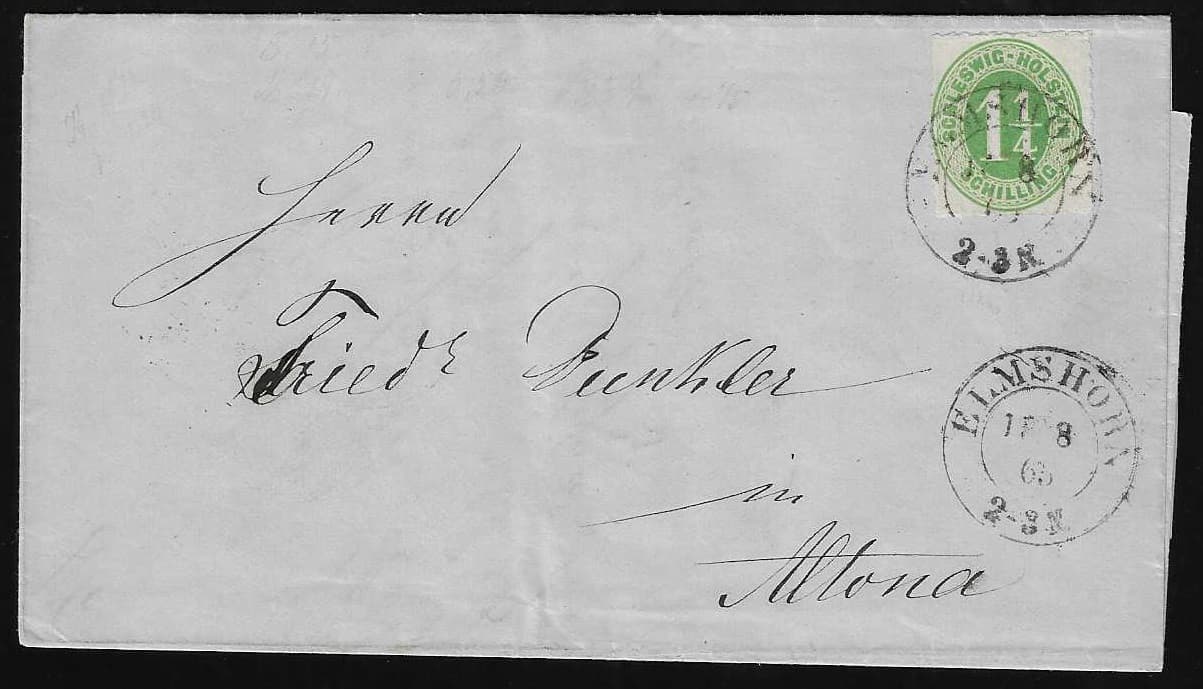 SCHLESWIG-HOLST.
1 1/4
SCHILLING
ELMSHORN
8
2-3 N
Herrn
Friedr Dunkler
in
Altona
ELMSHORN
8
65
2-3 N